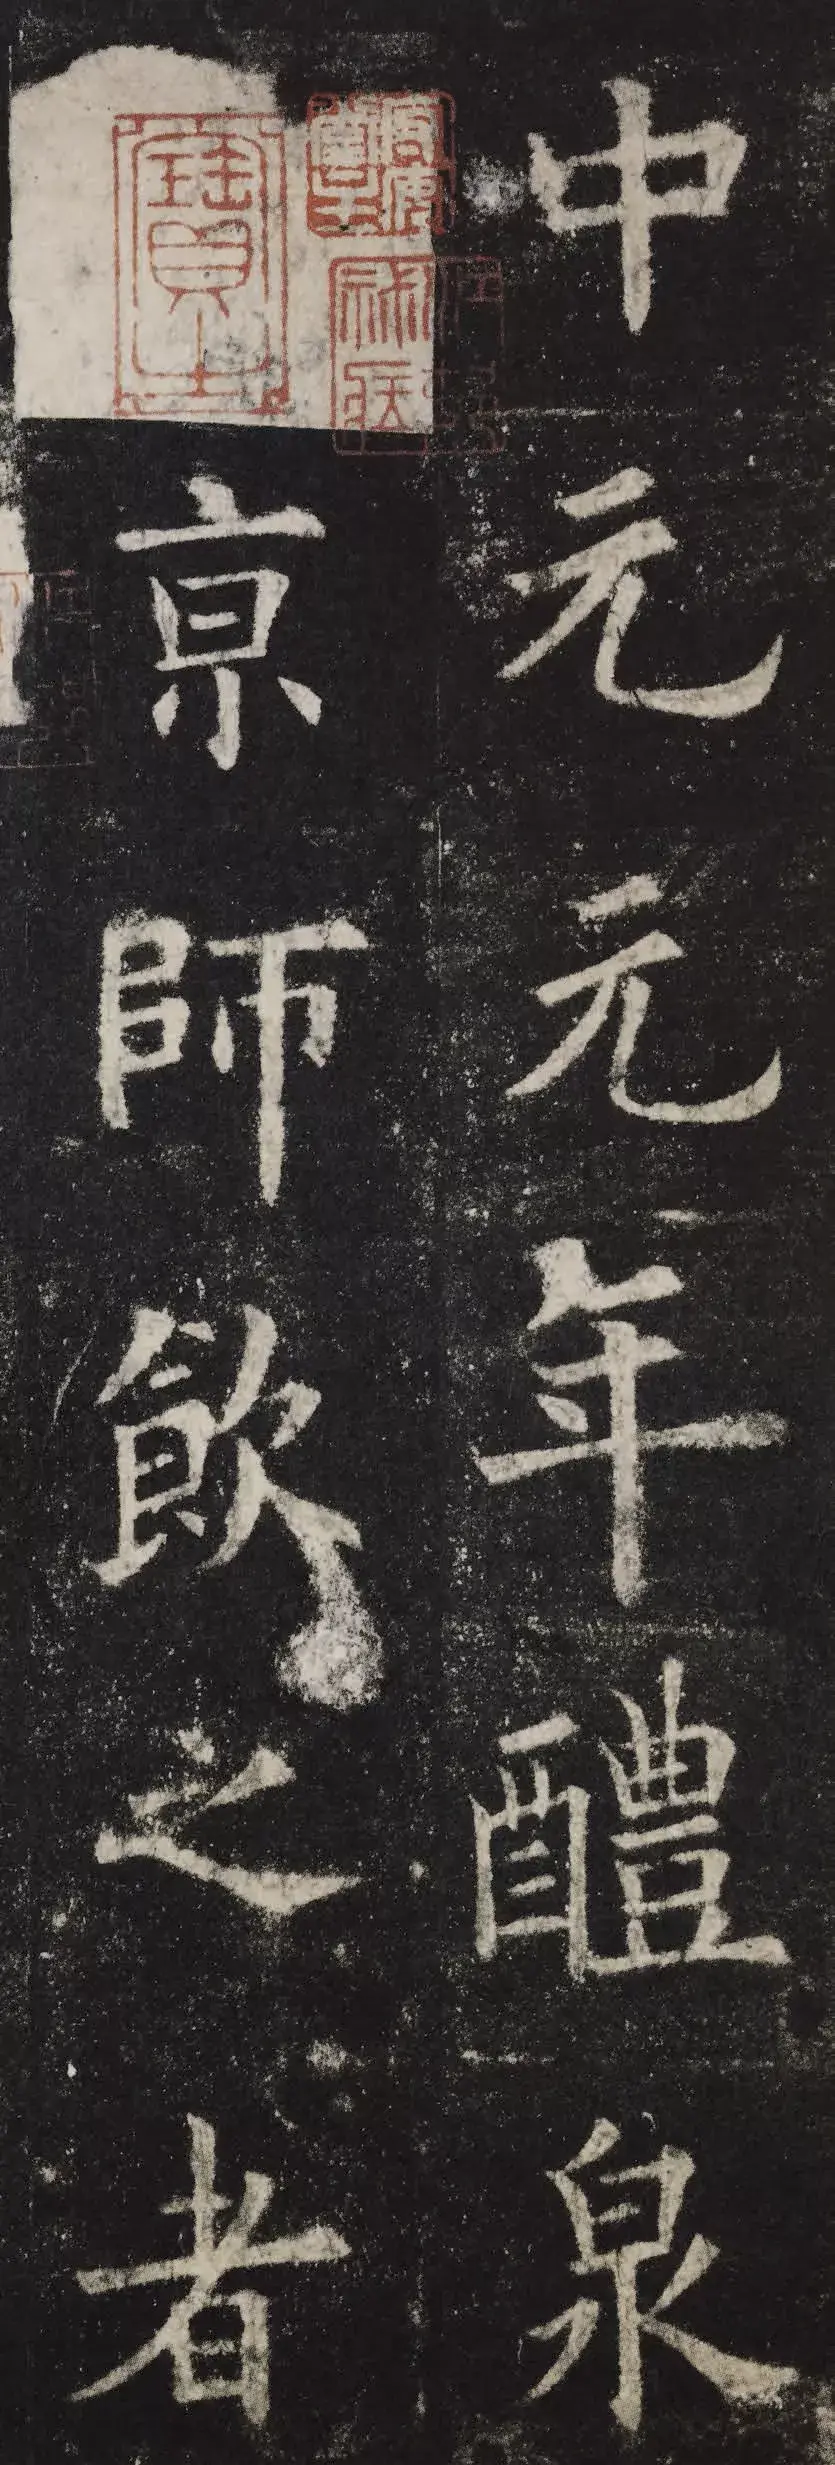 中元元年醴泉
京師飲之者